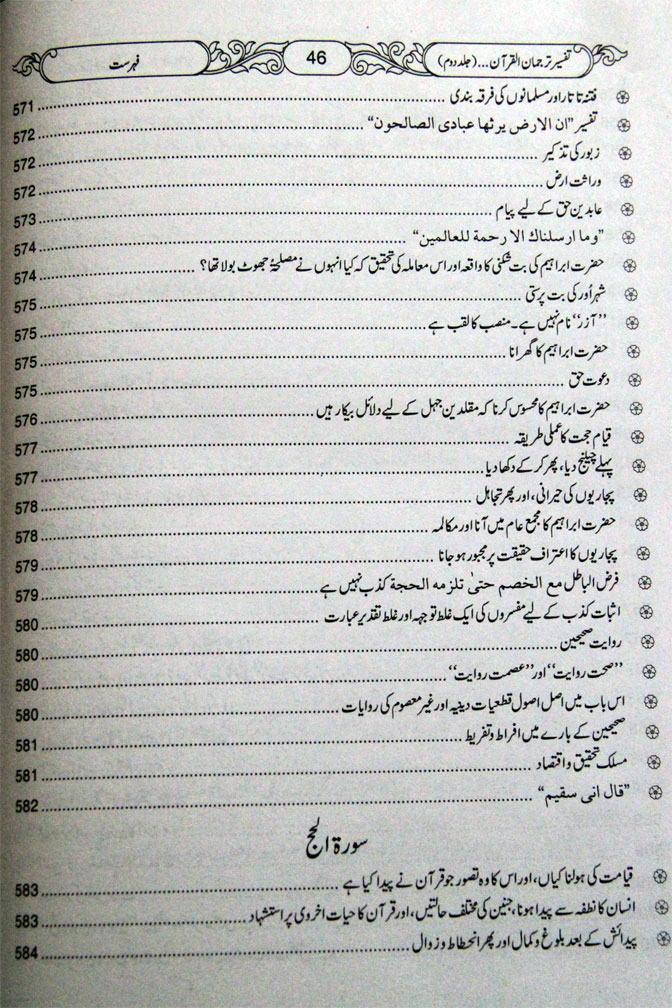 تفسیر ترجمان القرآن...(جلد دوم) 46 فہرست
فتنہ تاتار اور مسلمانوں کی فرقہ بندی ... 571
تفسیر "ان الارض یرثھا عبادی الصالحون" ... 572
زبور کی تذکیر ... 572
وراثت ارض ... 572
عابدین حق کے لیے پیام ... 573
"وما ارسلناك الا رحمة للعالمین" ... 574
حضرت ابراہیم کی بت شکنی کا واقعہ اور اس معاملہ کی تحقیق کہ کیا انہوں نے مصلحۃً جھوٹ بولا تھا؟ ... 574
شہر اُور کی بت پرستی ... 575
"آزر" نام نہیں ہے۔ منصب کا لقب ہے ... 575
حضرت ابراہیم کا گھرانا ... 575
دعوت حق ... 575
حضرت ابراہیم کا محسوس کرنا کہ مقلدین جہل کے لیے دلائل بیکار ہیں ... 576
قیام حجت کا عملی طریقہ ... 577
پہلے چیلنج دیا، پھر کر کے دکھا دیا ... 577
پجاریوں کی حیرانی، اور پھر تجاہل ... 578
حضرت ابراہیم کا مجمع عام میں آنا اور مکالمہ ... 578
پجاریوں کا اعتراف حقیقت پر مجبور ہو جانا ... 579
فرض الباطل مع الخصم حتیٰ تلزمه الحجة کذب نہیں ہے ... 579
اثبات کذب کے لیے مفسروں کی ایک غلط توجیہہ اور غلط تقدیر عبارت ... 580
روایت صحیحین ... 580
"صحت روایت" اور "عصمت روایت" ... 580
اس باب میں اصل اصول قطعیات دینیہ اور غیر معصوم کی روایات ... 580
صحیحین کے بارے میں افراط و تفریط ... 581
مسلک تحقیق و اقتصاد ... 581
"قال انی سقیم" ... 582
سورۃ الحج
قیامت کی ہولناکیاں، اور اس کا وہ تصور جو قرآن نے پیدا کیا ہے ... 583
انسان کا نطفہ سے پیدا ہونا، جنین کی مختلف حالتیں، اور قرآن کا حیات اخروی پر استشہاد ... 583
پیدائش کے بعد بلوغ و کمال اور پھر انحطاط و زوال ... 584